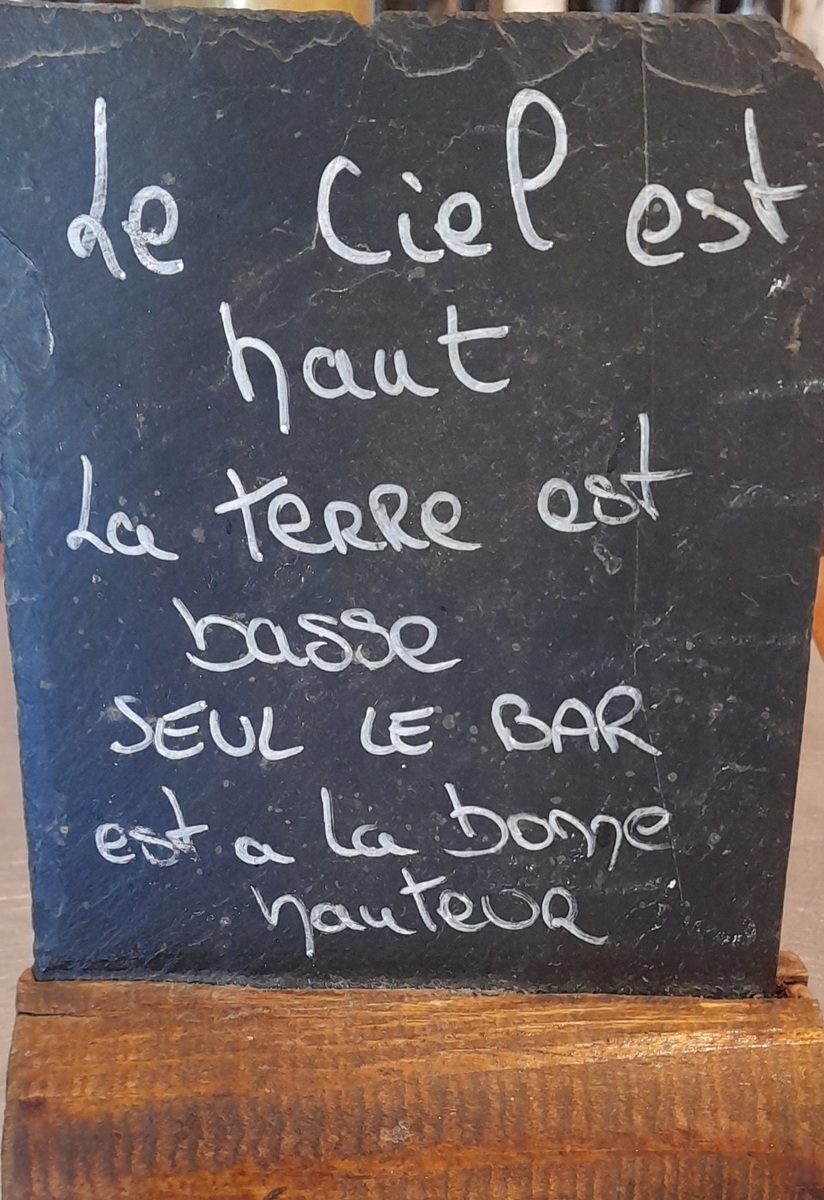 Le Ciel est
haut
La terre est
basse
SEUL LE BAR
est a la bonne
hauteur